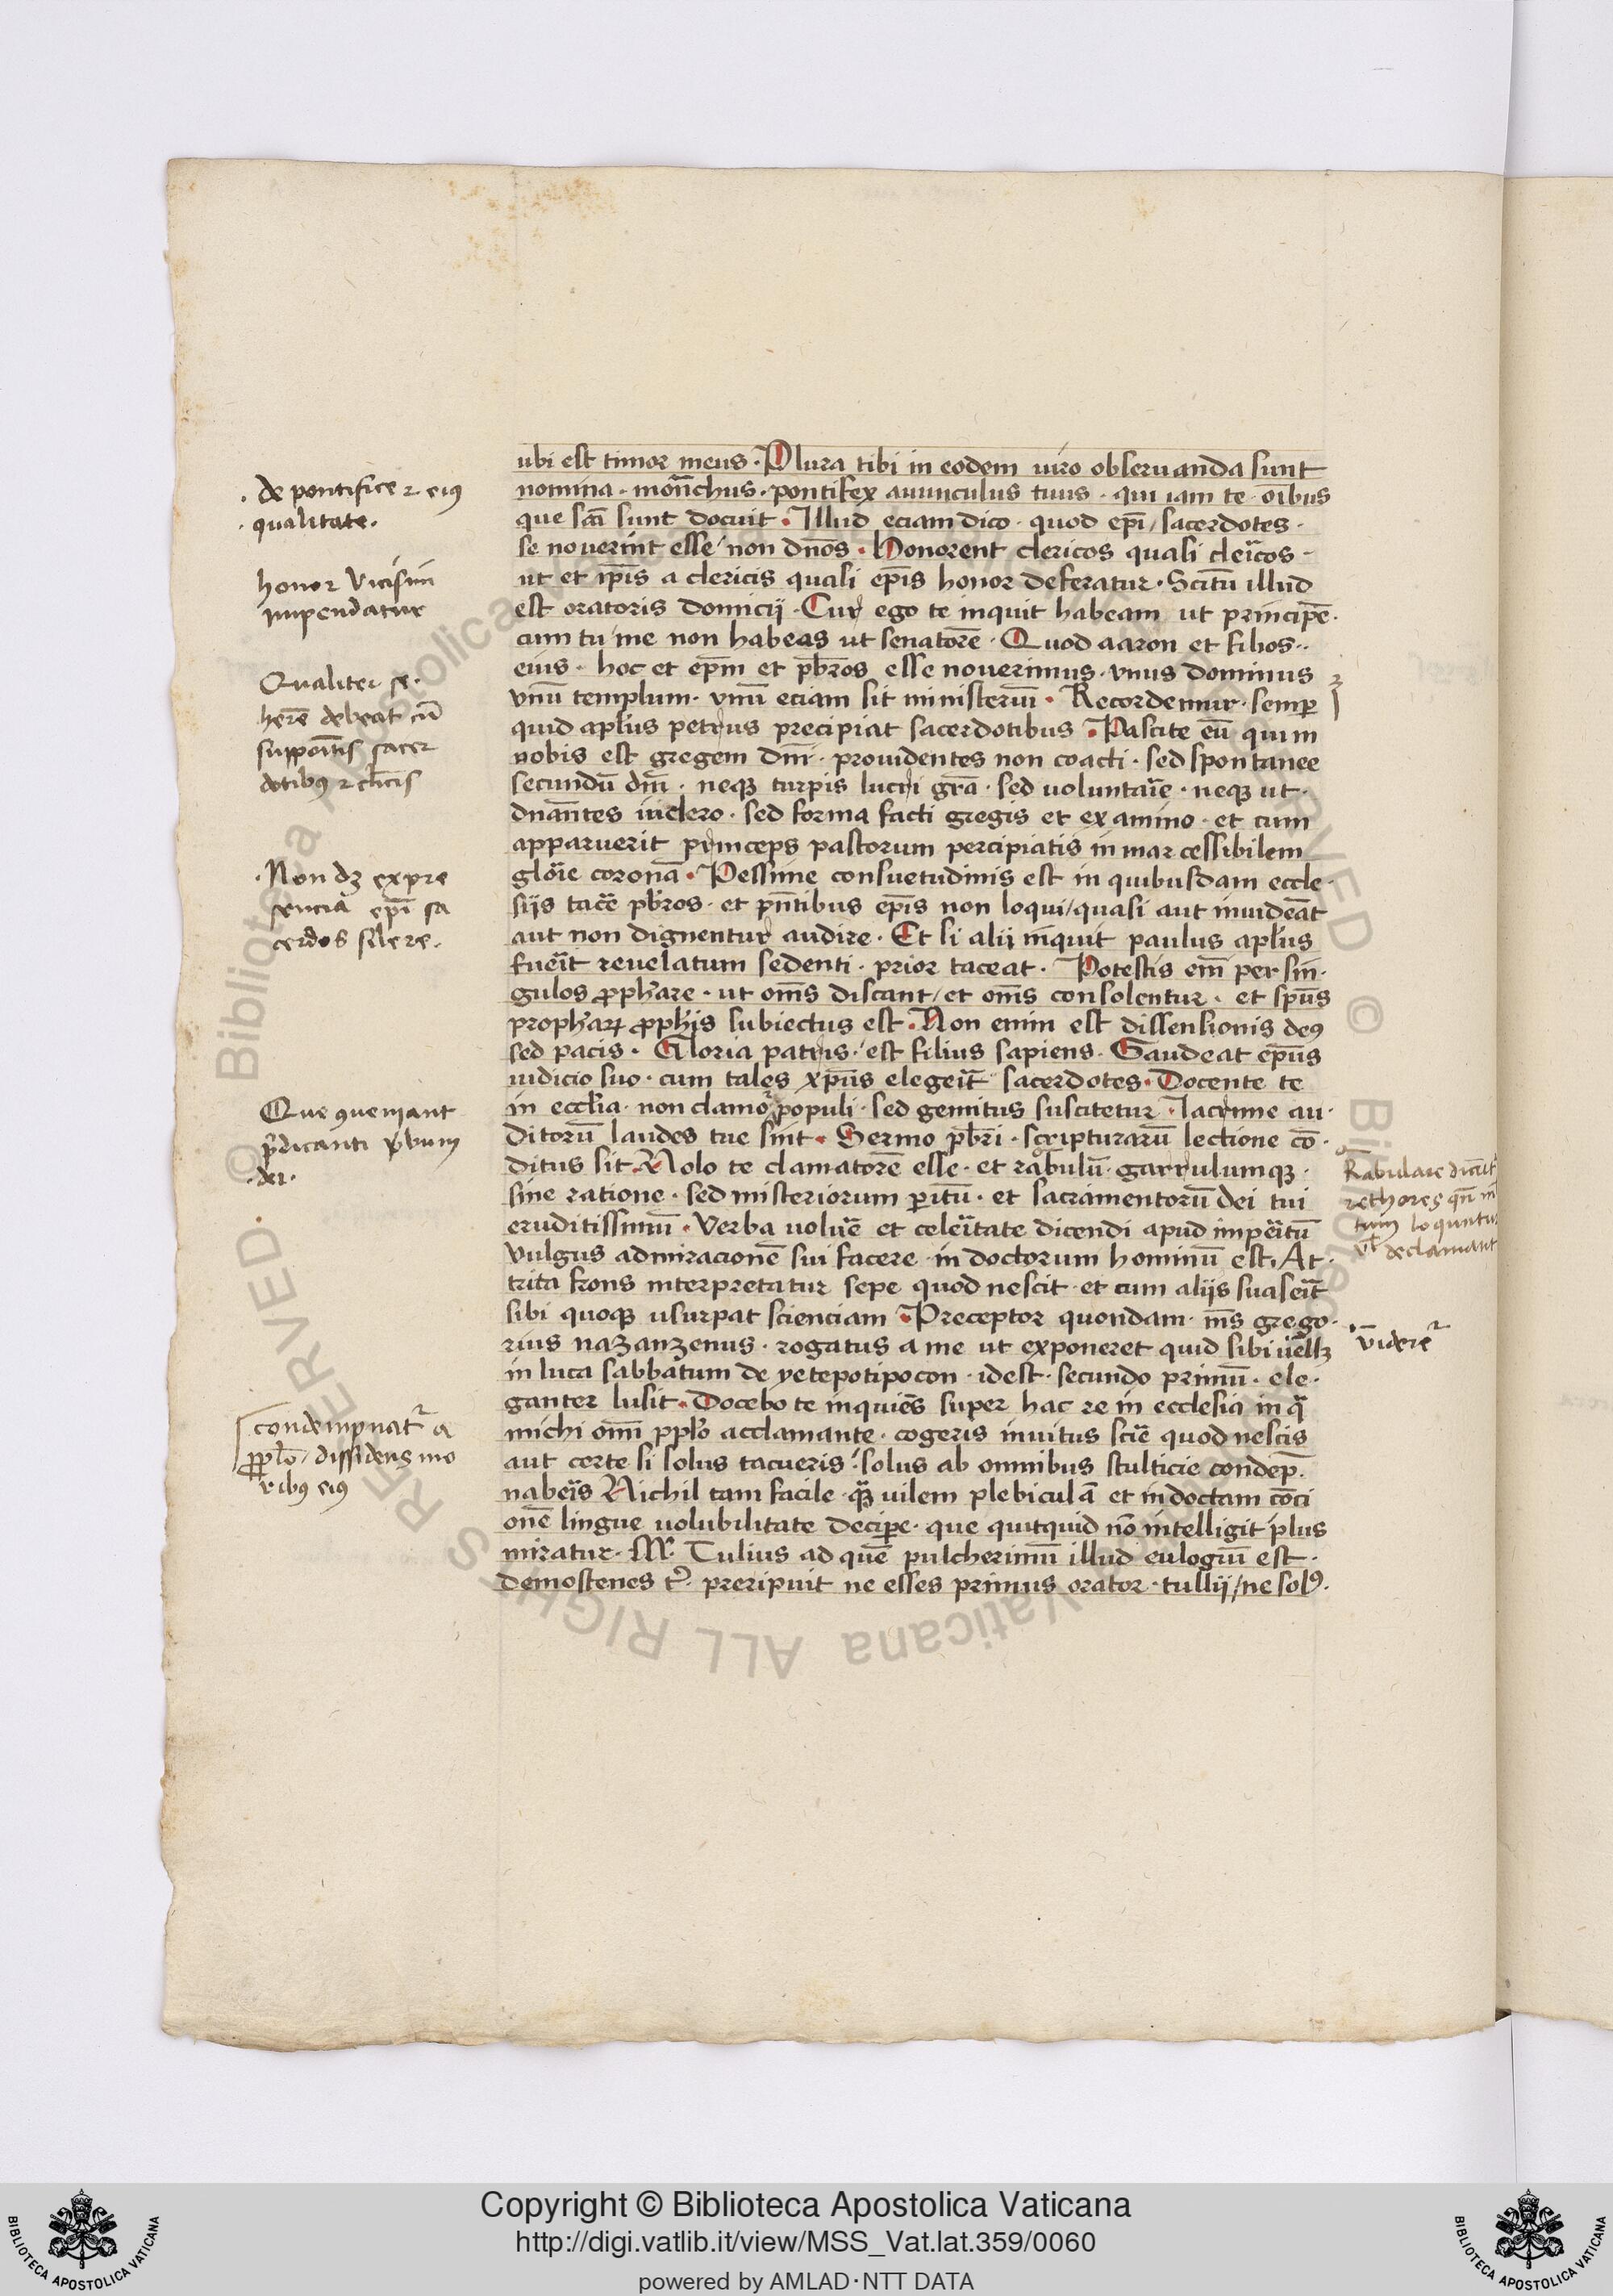 ubi est timor meus · Plura tibi in eodem uiro obseruanda sunt
nomina · mon̄achus · pontifex auunculus tuus · qui iam te oi̅bus
que sc̄a sunt docuit · Illud eciam dico · quod epi̅ / sacerdotes ·
se nouerint esse / non dn̅os · Honorent clericos quasi clei̅cos ·
ut et ip̅is a clericis quasi ep̅is honor deferatur · Scitu̅ illud
est oratoris domicij · Cur ego te inquit habeam ut principe̅ ·
cum tu me non habeas ut senatore̅ · Quod aaron et filios ··
eius · hoc et ep̅m et pb̅ros esse nouerimus · vnus dominus
vnu̅ templum · vnu̅ eciam sit ministeriu̅ · Recordemur · semp̲
quid apl̅us petrus precipiat sacerdotibus · Pascite eu̅ qui in
nobis est gregem dn̅i · prouidentes non coacti · sed spontanee
secundu̅ dm̅ · neqꝫ turpis lucri gr̅a · sed uoluntai̅e · neqꝫ ut ·
dna̅ntes in clero · sed forma facti gregis et ex animo · et cum
apparuerit princeps pastorum percipiatis in marcessibilem
gloi̅e corona̅ · Pessime consuetudinis est in quibusdam eccle ·
sijs tace̅ pb̅ros · et pn̅tibus ep̅is non loqui / quasi aut inuidea̅t
aut non dignentur audire · Et si alij inquit paulus apl̅us
fuei̅t reuelatum sedenti · prior taceat · Potestis em̅ per sin ·
gulos ꝓphare · ut om̅s discant / et om̅s consolentur · et sp̅us
prophaꝝ ꝓphi̅s subiectus est · Non enim est dissensionis deꝰ
sed pacis · Gloria patris · est filius sapiens · Gaudeat ep̅us
iudicio suo · cum tales xp̅us elegei̅t sacerdotes · Docente te
in eccl̅ia · non clamor populi · sed gemitus suscitetur · lacrime au ·
ditoru̅ laudes tue sint · Sermo pb̅ri · scripturaru̅ lectione co̅ ·
ditus sit · Nolo te clamatore̅ esse · et rabulu̅ · garrulumqꝫ ·
sine ratione · sed misteriorum p̲itu̅ · et sacramentoru̅ dei tui
eruditissimu̅ · Verba uolue̅ et celei̅tate dicendi apud impei̅tu̅
vulgus admiracione̅ sui facere · in doctorum hominu̅ est · At ·
trita frons interpretatur sepe quod nescit · et cum alijs suasei̅t
sibi quoqꝫ usurpat scienciam · Preceptor quondam · m̅s grego ·
rius nazanzenus · rogatus a me ut exponeret quid sibi uellꝫ
in luca sabbatum deyetepotipocon · idest · secundo primu̅ · ele ·
ganter lusit · Docebo te inquie̅s super hac re in ecclesia in qͣ
michi om̅i ppl̅o acclamante · cogeris inuitus scie̅ quod nescis
aut certe si solus tacueris · solus ab omnibus stulticie condep̅ ·
nabei̅s Nichil tam facile qͣꝫ uilem plebicula̅ et indoctam co̅ci
one̅ lingue uolubilitate decip̲e · que quitquid no̅ intelligit plus
miratur · M · Tulius ad que̅ pulcherimu̅ illud eulogiu̅ est ·
demostenes t̉ · preripuit ne esses primus orator · tullij / ne solꝰ ·
· de pontifice ⁊ eiꝰ
· qualitate ·
honor vicisim
impendatur
Qualiter se ·
here̅ debeat cu̅
suppoi̅tis sacer
dotibꝰ ⁊ cl̅icis
· Non dꝫ ex pre
sencia epi̅ sa
cerdos silere ·
Que ꝯueniant
p̅dicanti v̅bum
· dei ·
condempnatr̉ a
ppl̅o / dissidens mo
ribꝰ eiꝰ
Rabulare dicu̅tr̉
rethores qn̅ in
tum loquntur
vl̅ declamant
videre̅
Copyright © Biblioteca Apostolica Vaticana
http://digi.vatlib.it/view/MSS_Vat.lat.359/0060
powered by AMLAD·NTT DATA
BIBLIOTECA APOSTOLICA VATICANA
BIBLIOTECA APOSTOLICA VATICANA